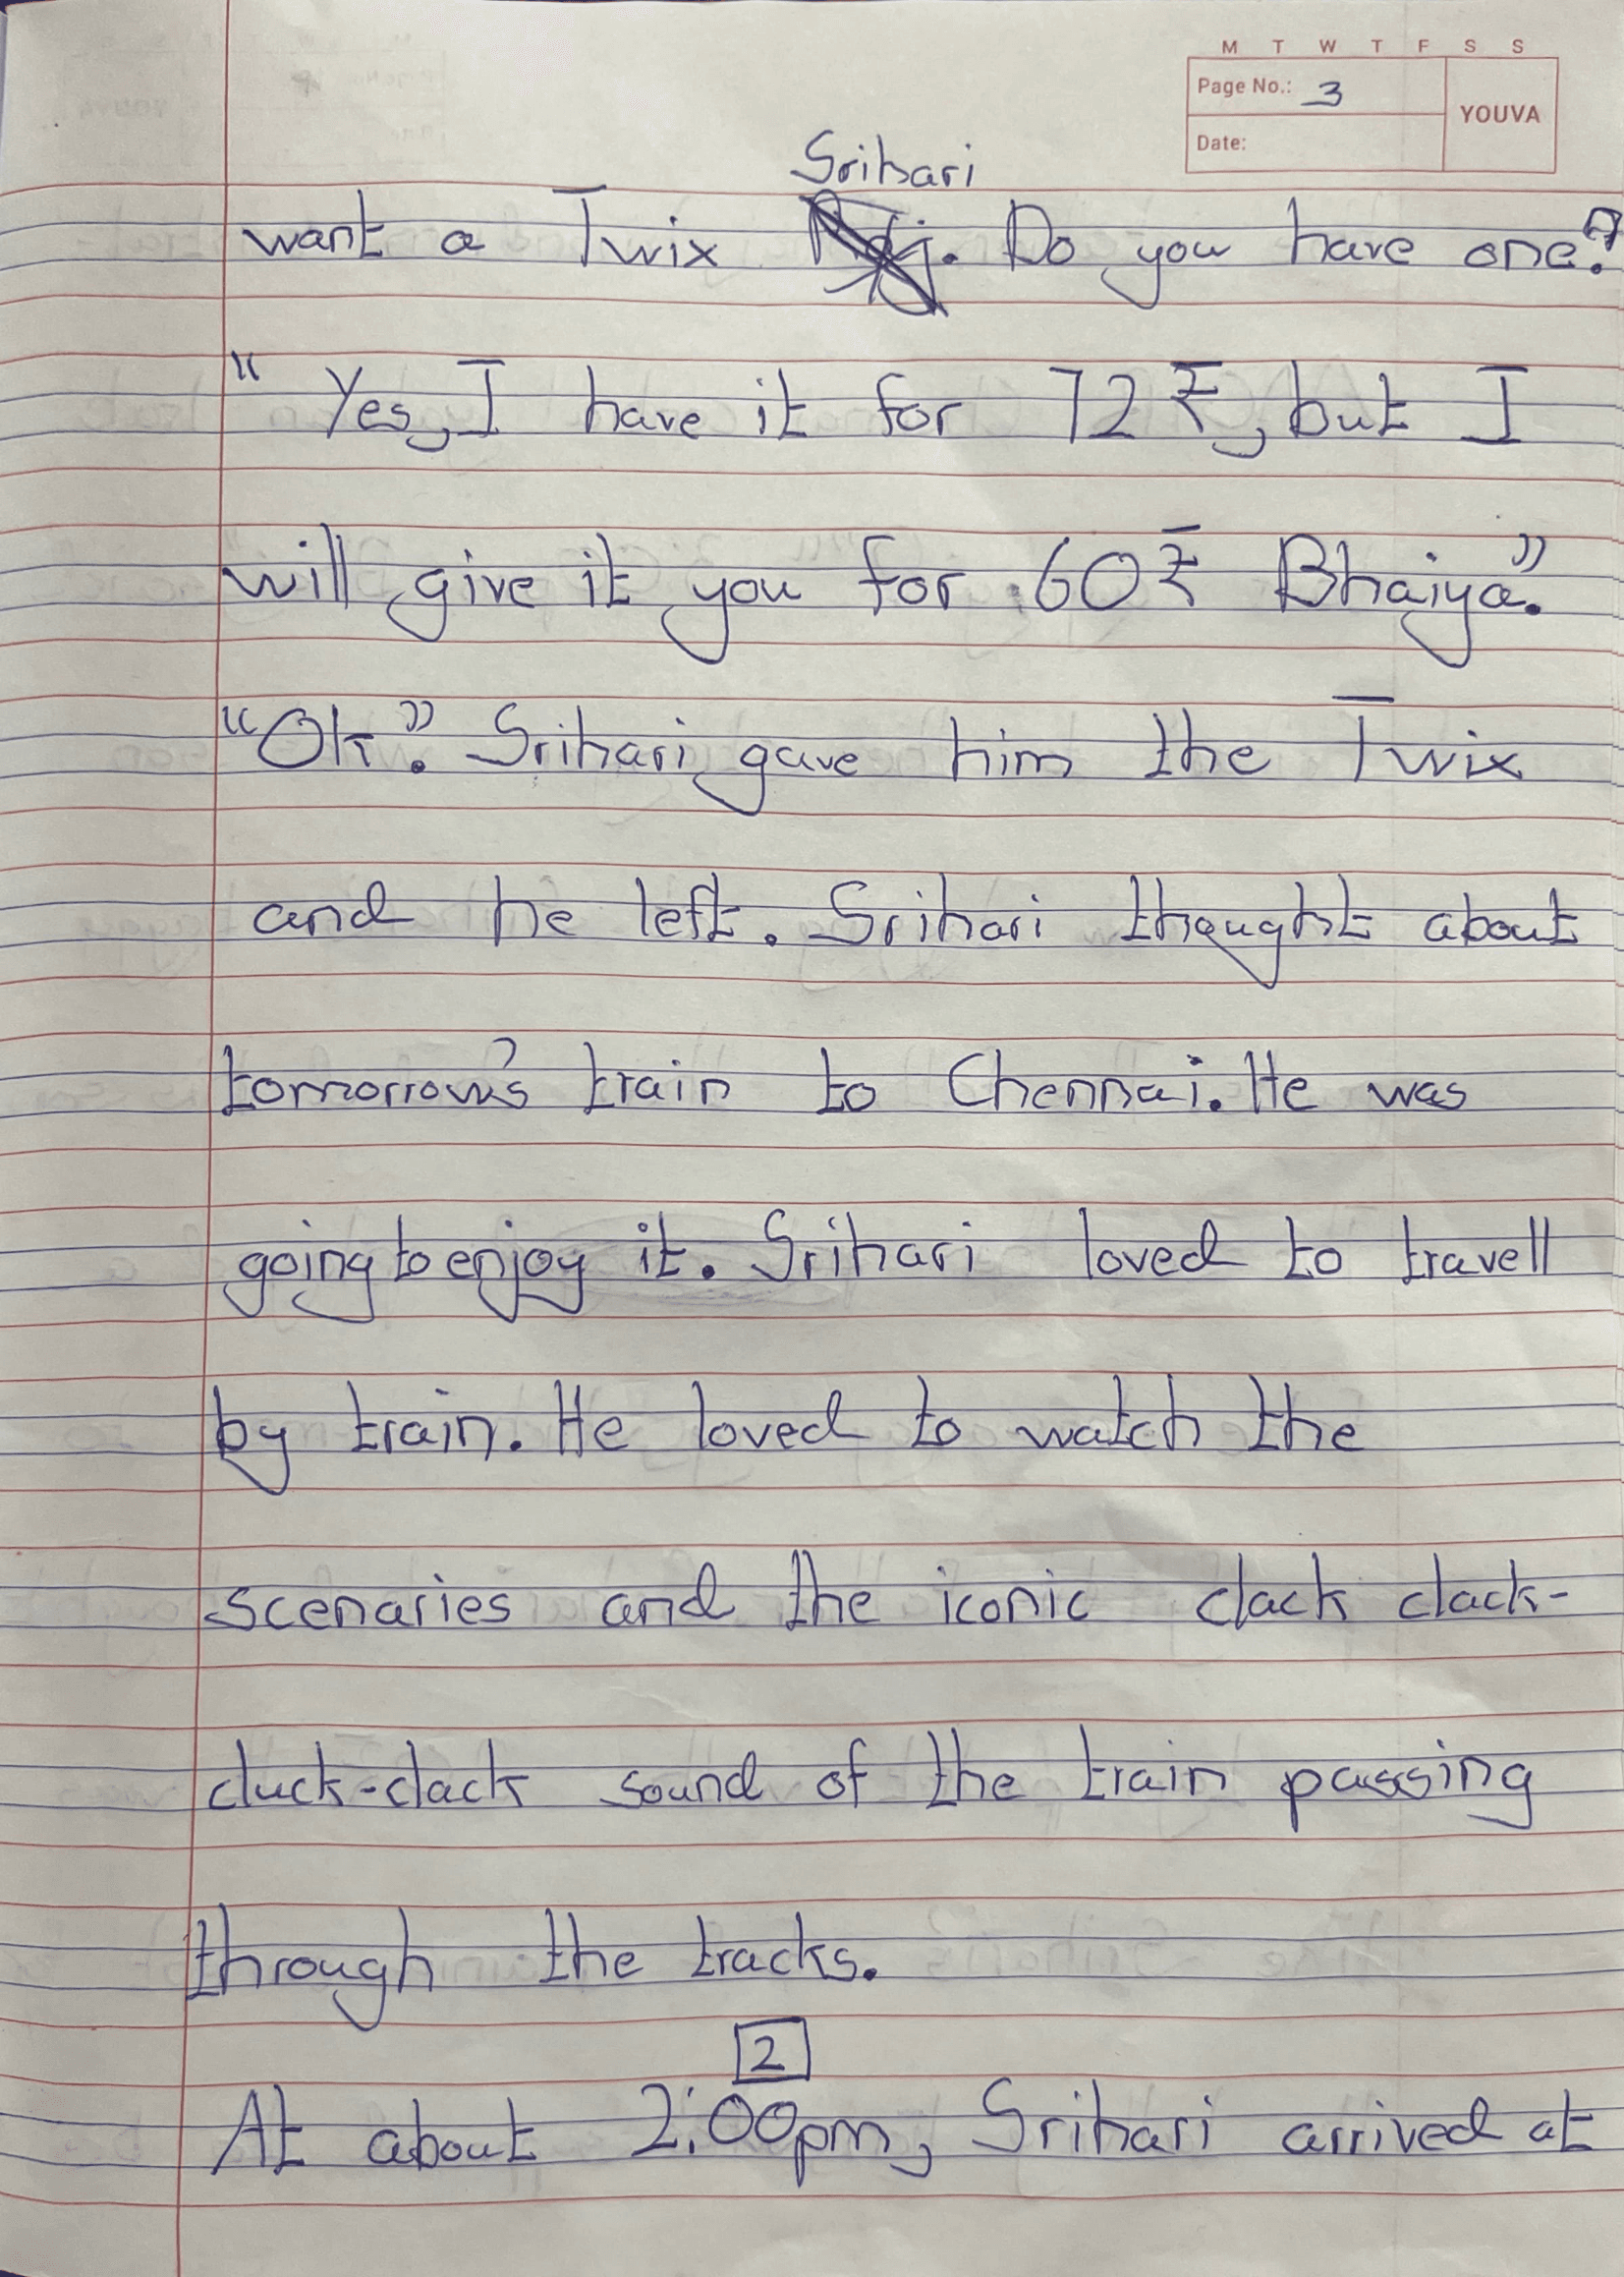 M T W T F S S
Page No.: 3
YOUVA
Date:
Srihari
want a Twix . Do you have one?"
"Yes, I have it for 72 ₹, but I
will give it you for 60 ₹ Bhaiya."
"Ok." Srihari gave him the Twix
and he left. Srihari thought about
tomorrow's train to Chennai. He was
going to enjoy it. Srihari loved to travell
by train. He loved to watch the
scenaries and the iconic clack clack-
cluck-clack sound of the train passing
through the tracks.
2
At about 2:00pm, Srihari arrived at